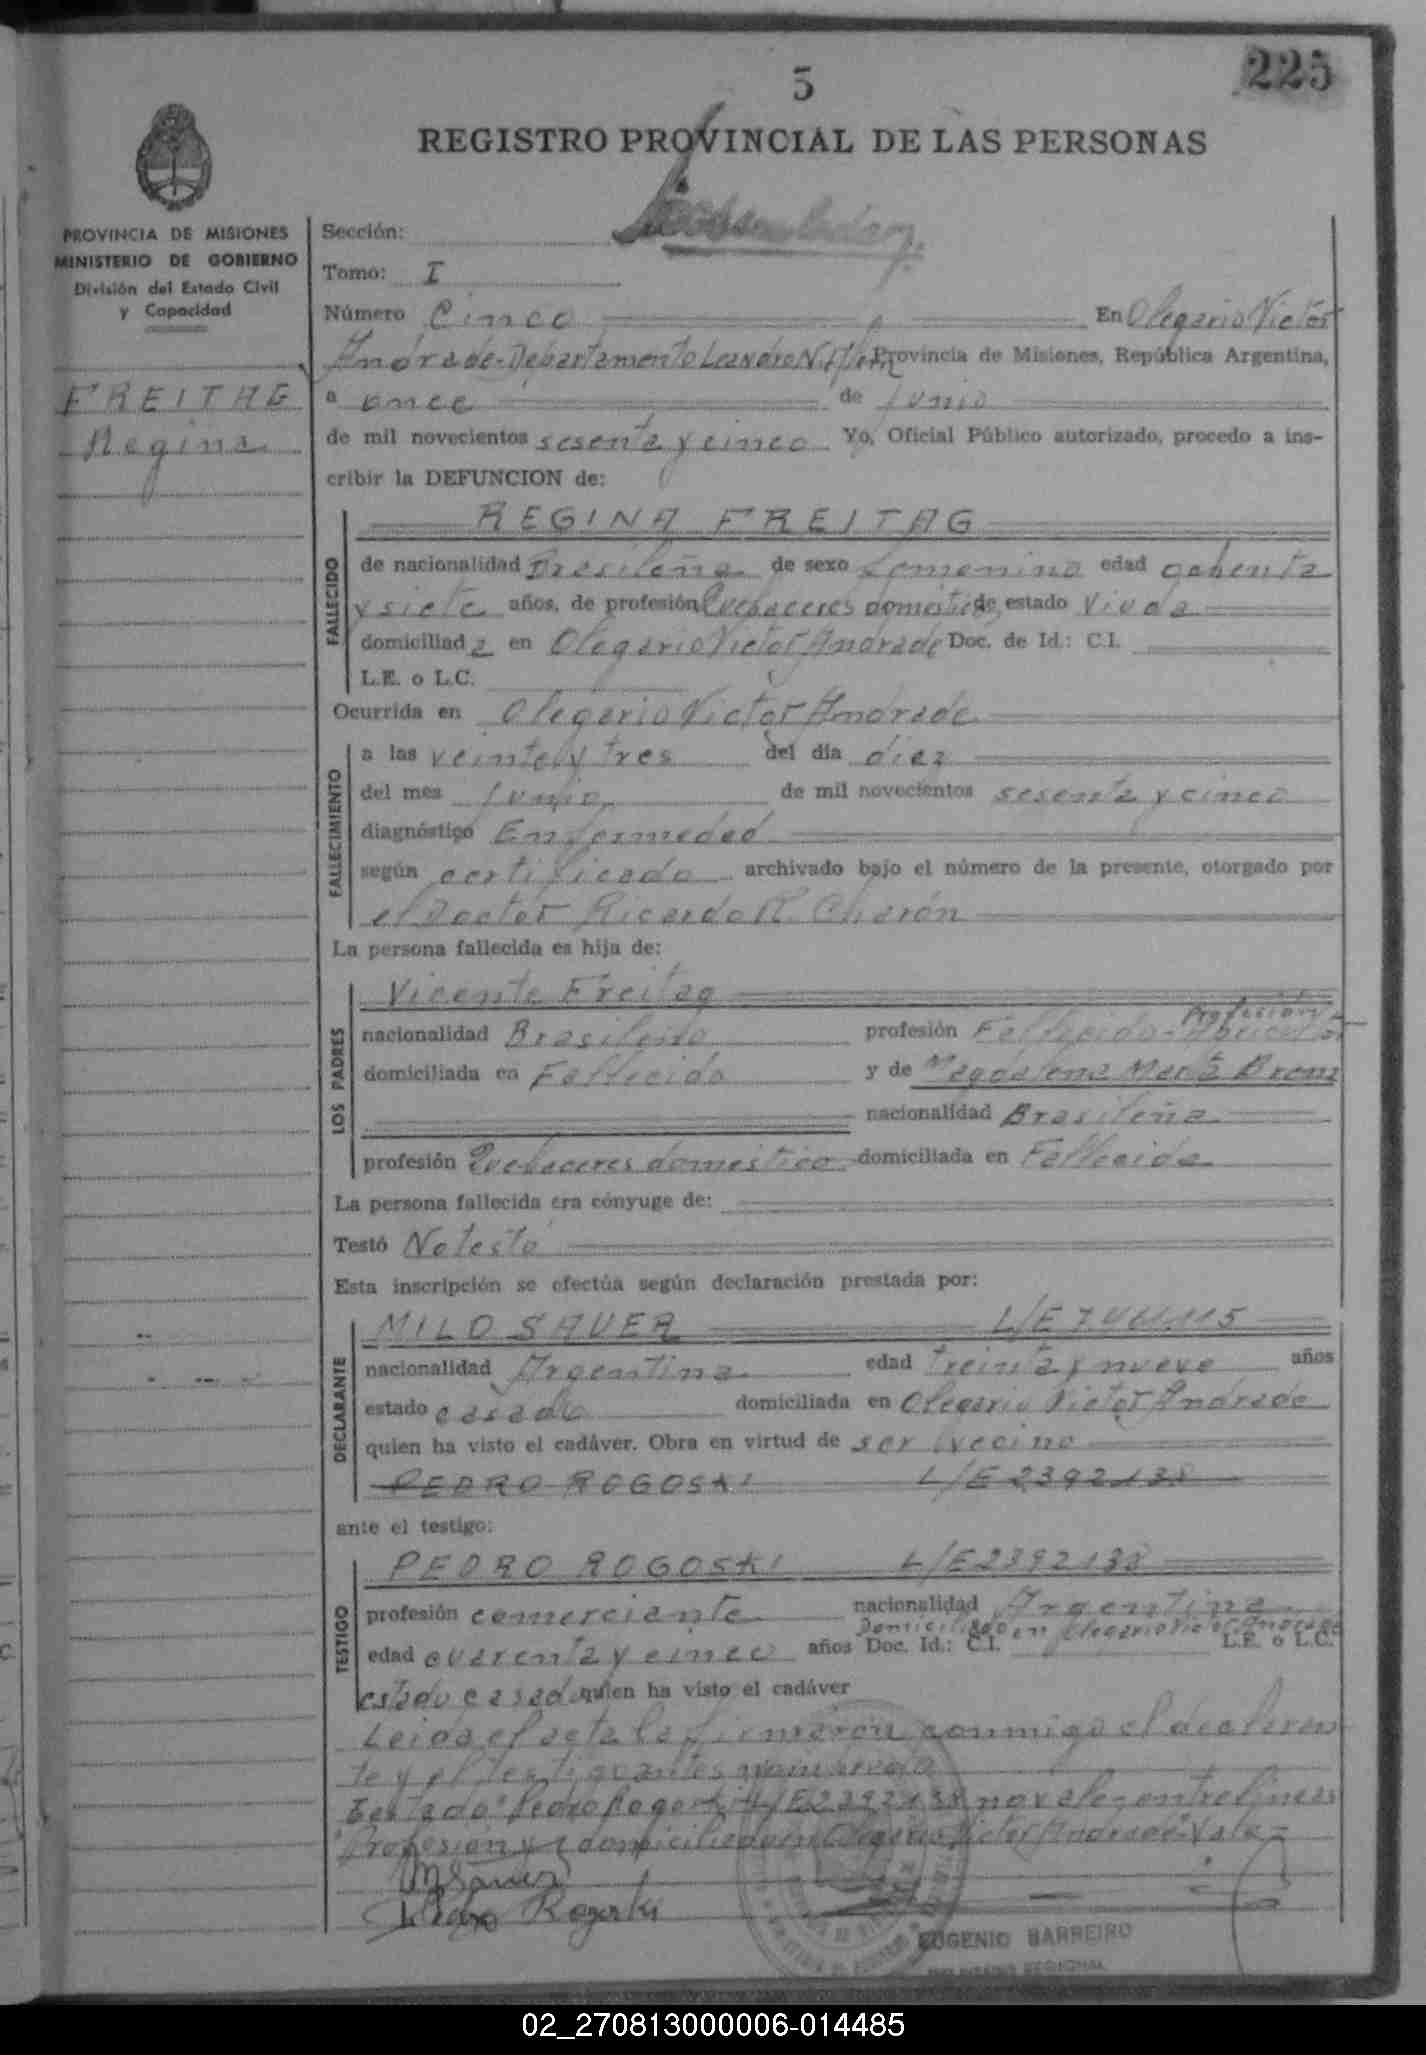 5
225
REGISTRO PROVINCIAL DE LAS PERSONAS
PROVINCIA DE MISIONES
MINISTERIO DE GOBIERNO
División del Estado Civil
y Capacidad
FREITAG
Regina
Sección:
Tomo: I
Número Cinco En Olegario Victor
Andrade - Departamento Leandro N. Alem Provincia de Misiones, República Argentina,
a once de Junio
de mil novecientos sesenta y cinco Yo, Oficial Público autorizado, procedo a ins-
cribir la DEFUNCION de:
FALLECIDO
REGINA FREITAG
de nacionalidad Brasileña de sexo femenino edad ochenta
y siete años, de profesión Quehaceres domésticos de estado Viuda
domiciliada en Olegario Victor Andrade Doc. de Id.: C.I.
L.E. o L.C.
Ocurrida en Olegario Victor Andrade
FALLECIMIENTO
a las veinte y tres del día diez
del mes Junio de mil novecientos sesenta y cinco
diagnóstico Enfermedad
según certificado archivado bajo el número de la presente, otorgado por
el Doctor Ricardo R. Charón
La persona fallecida es hija de:
LOS PADRES
Vicente Freitag
nacionalidad Brasileño profesión Fallecido - Profesión Agricultor
domiciliada en Fallecido y de Magdalena María
nacionalidad Brasileña
profesión Quehaceres domestico domiciliada en Fallecida
La persona fallecida era cónyuge de:
Testó No testó
Esta inscripción se efectúa según declaración prestada por:
DECLARANTE
MILO SAUER L/E
nacionalidad Argentina edad treinta y nueve años
estado casado domiciliada en Olegario Victor Andrade
quien ha visto el cadáver. Obra en virtud de ser vecino
PEDRO ROGOSKI L/E 2392138
ante el testigo:
TESTIGO
PEDRO ROGOSKI L/E 2392138
profesión comerciante nacionalidad Argentina
Domiciliado en Olegario Victor Andrade
edad cuarenta y cinco años Doc. Id.: C.I. L.E. o L.C.
estado casado quien ha visto el cadáver
Leida el acta la firmaron conmigo el declaran
te y el testigo antes nombrado
Testado "Pedro Rogoski L/E 2392138 no vale, entrelineas
"Profesion y domiciliado en Olegario Victor Andrade" Vale -
MSauer
Pedro Rogoski
EUGENIO BARREIRO
02_270813000006-014485